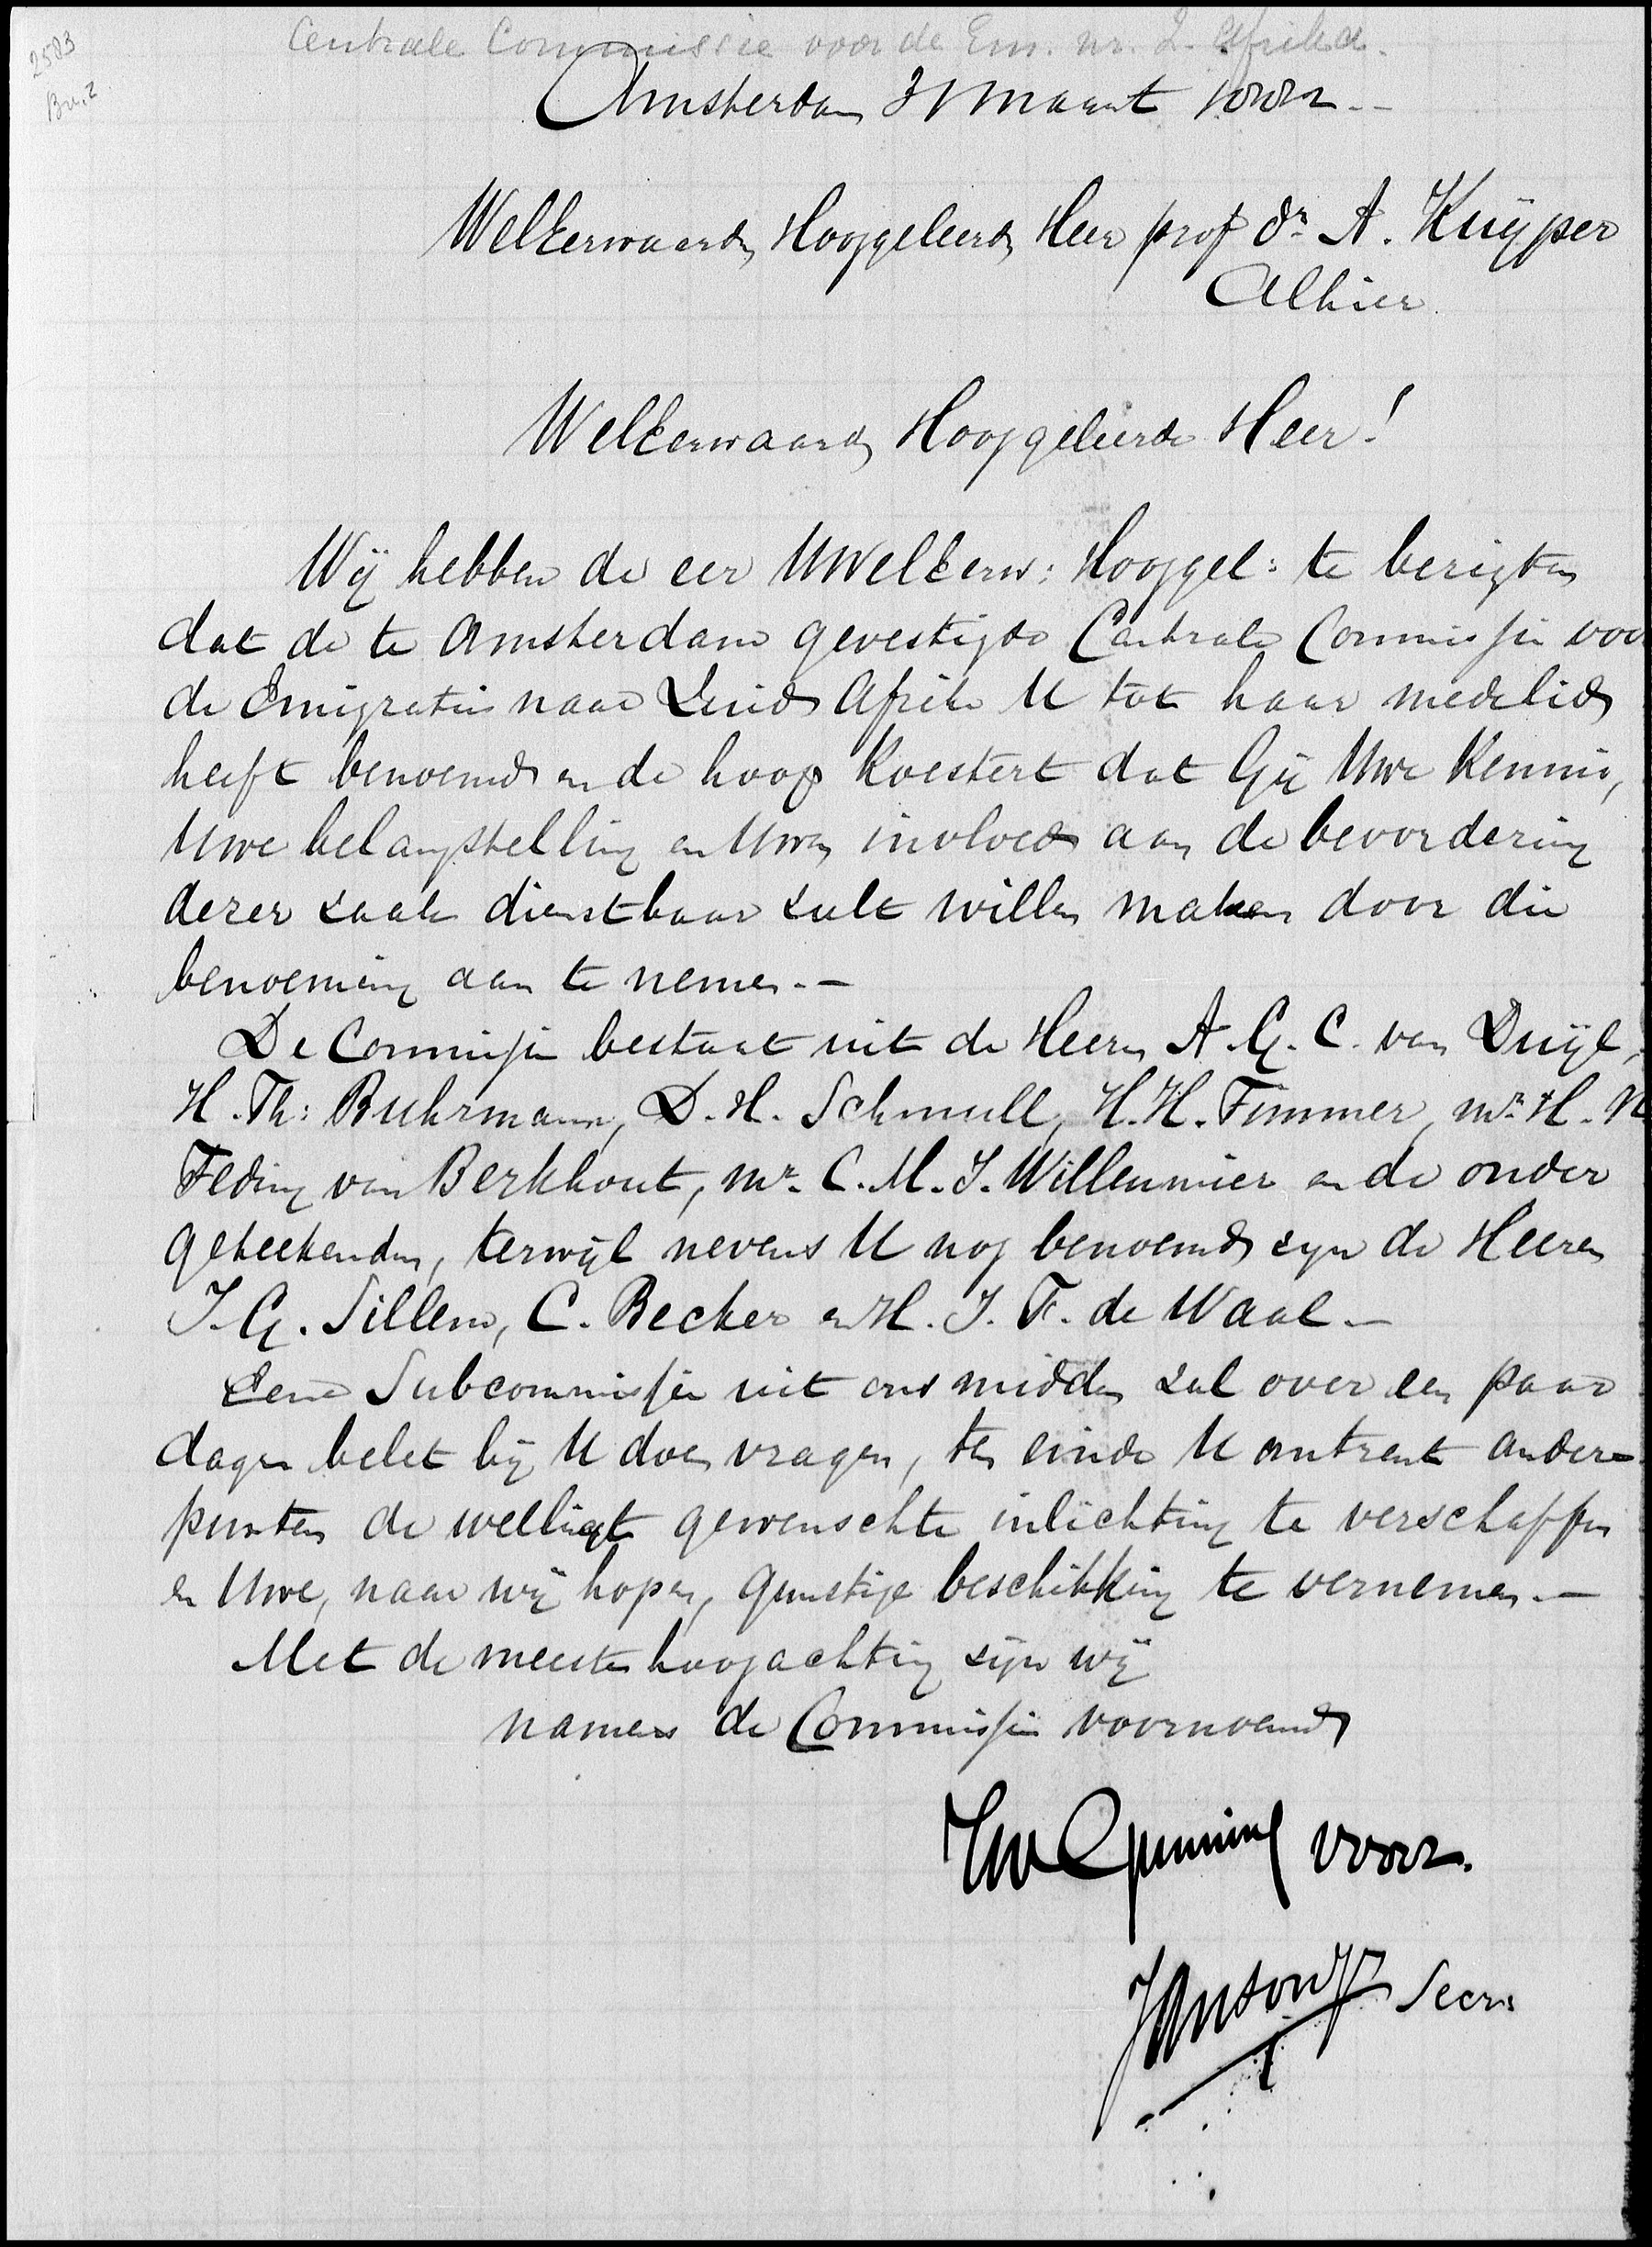 2583
Br. 2
Centrale Commissie voor de Em. nr. Z. Afrika.
Amsterdam 31 Maart 1882 -
WelEerwaarde Hooggeleerde Heer prof dr A. Kuijper
Alhier.
WelEerwaarde Hooggeleerde Heer!
Wij hebben de eer UWelEerw: Hooggel: te berigten
dat de te Amsterdam gevestigde Centrale Commissie voo
de Emigratie naar Zuid Afrika U tot haar medelid
heeft benoemd en de hoop koestert dat Gij Uwe kennis,
Uwe belangstelling en Uwen invloed aan de bevordering
dezer zaak dienstbaar zult willen maken door die
benoeming aan te nemen. -
De Commissie bestaat uit de Heeren A. G. C. van Duijl,
H. Th: Buhrmann, D. H. Schmull, H. H. Timmer, Mr. H.
Teding van Berkhout, Mr. C. M. J. Willeumier en de onder
geteekenden, terwijl nevens U nog benoemd zijn de Heeren
J. G. Sillem, C. Becker en H. J. F. de Waal. -
Eene Subcommissie uit ons midden zal over een paar
dagen belet bij U doen vragen, ten einde U omtrent andere
punten de welligt gewenschte inlichting te verschaffen
en Uwe, naar wij hopen, gunstige beschikking te vernemen. -
Met de meeste hoogachting zijn wij
namens de Commissie voornoemd
Gunning voorz.
Secr: